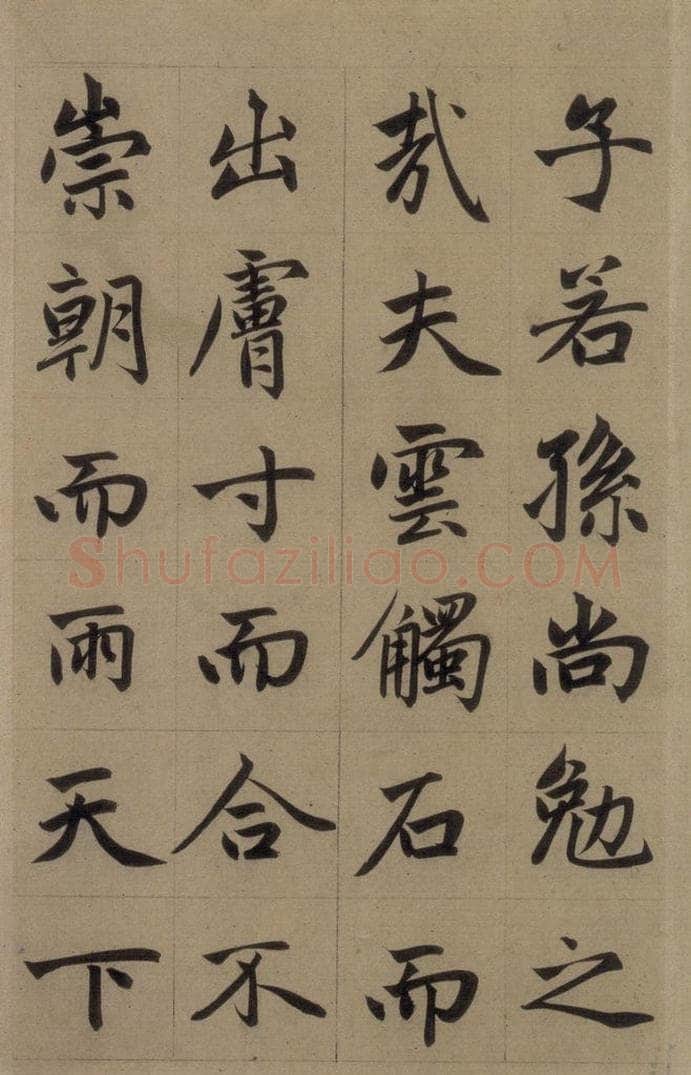 子若孫尚勉之
哉夫雲觸石而
出膚寸而合不
崇朝而雨天下
Shufaziliao.COM